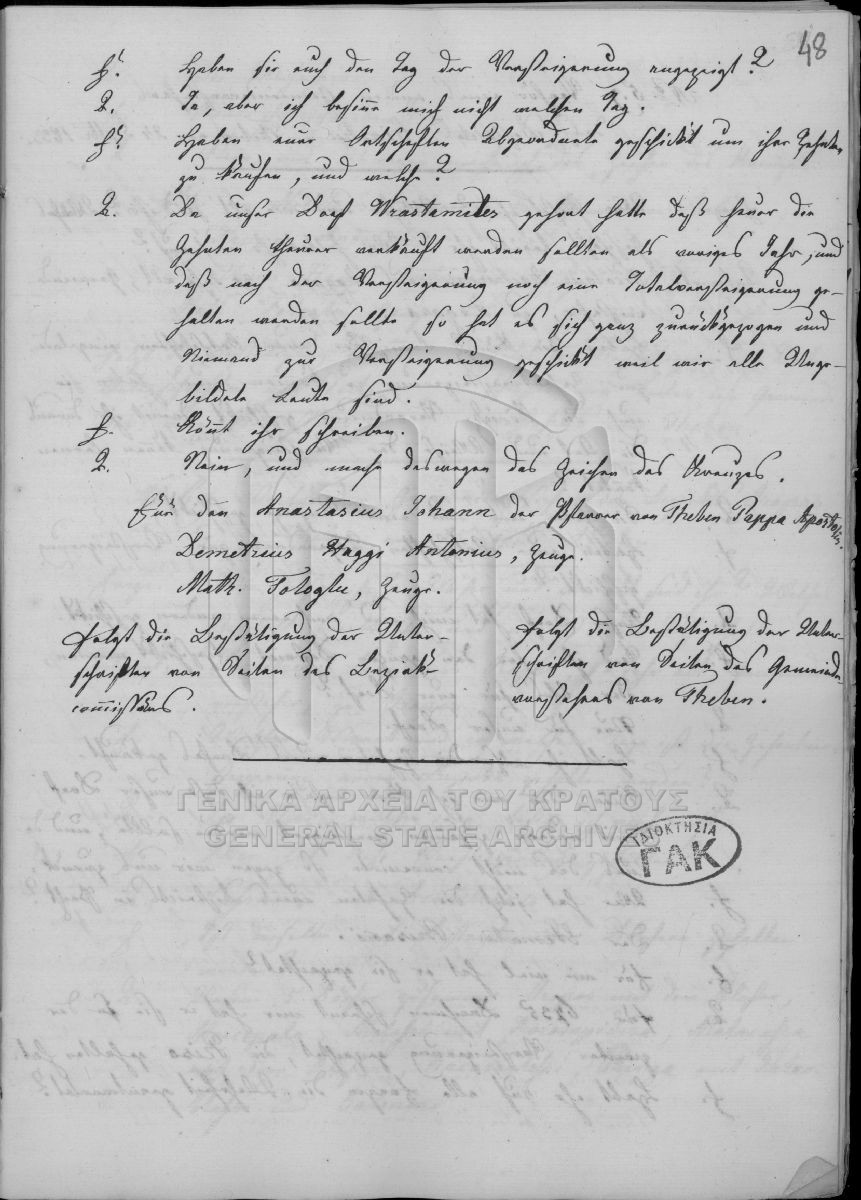 48
F. Haben sie auch den Tag der Versteigerung angezeigt?
A. Ja, aber ich besinne mich nicht welchen Tag.
F. Haben eure Ortschaften Abgeordnete geschickt um ihre Zehnten
zu kaufen, und welche?
A. Da unser Dorf Wrastamites gehört hatte daß heuer die
Zehnten theurer verkauft werden sollten als voriges Jahr, und
daß nach der Versteigerung noch eine Totalversteigerung ge-
halten werden sollte so hat es sich ganz zurückgezogen und
Niemand zur Versteigerung geschickt weil wir alle Unge-
bildete Leute sind.
F. Könnt ihr schreiben.
A. Nein, und mache deswegen das Zeichen des Kreuzes.
Für den Anastasius Johann der Pfarrer von Theben Pappa Apostolis.
Demetrius Haggi Antonius, Zeuge.
Math. Tologlu, Zeuge.
Folgt die Bestätigung der Unter-
schriften von Seiten des Bezirk-
commissärs.
Folgt die Bestätigung der Unter-
schriften von Seiten des Gemeinde-
vorstehers von Theben.
ΓΕΝΙΚΑ ΑΡΧΕΙΑ ΤΟΥ ΚΡΑΤΟΥΣ
GENERAL STATE ARCHIVES
ΙΔΙΟΚΤΗΣΙΑ
ΓΑΚ